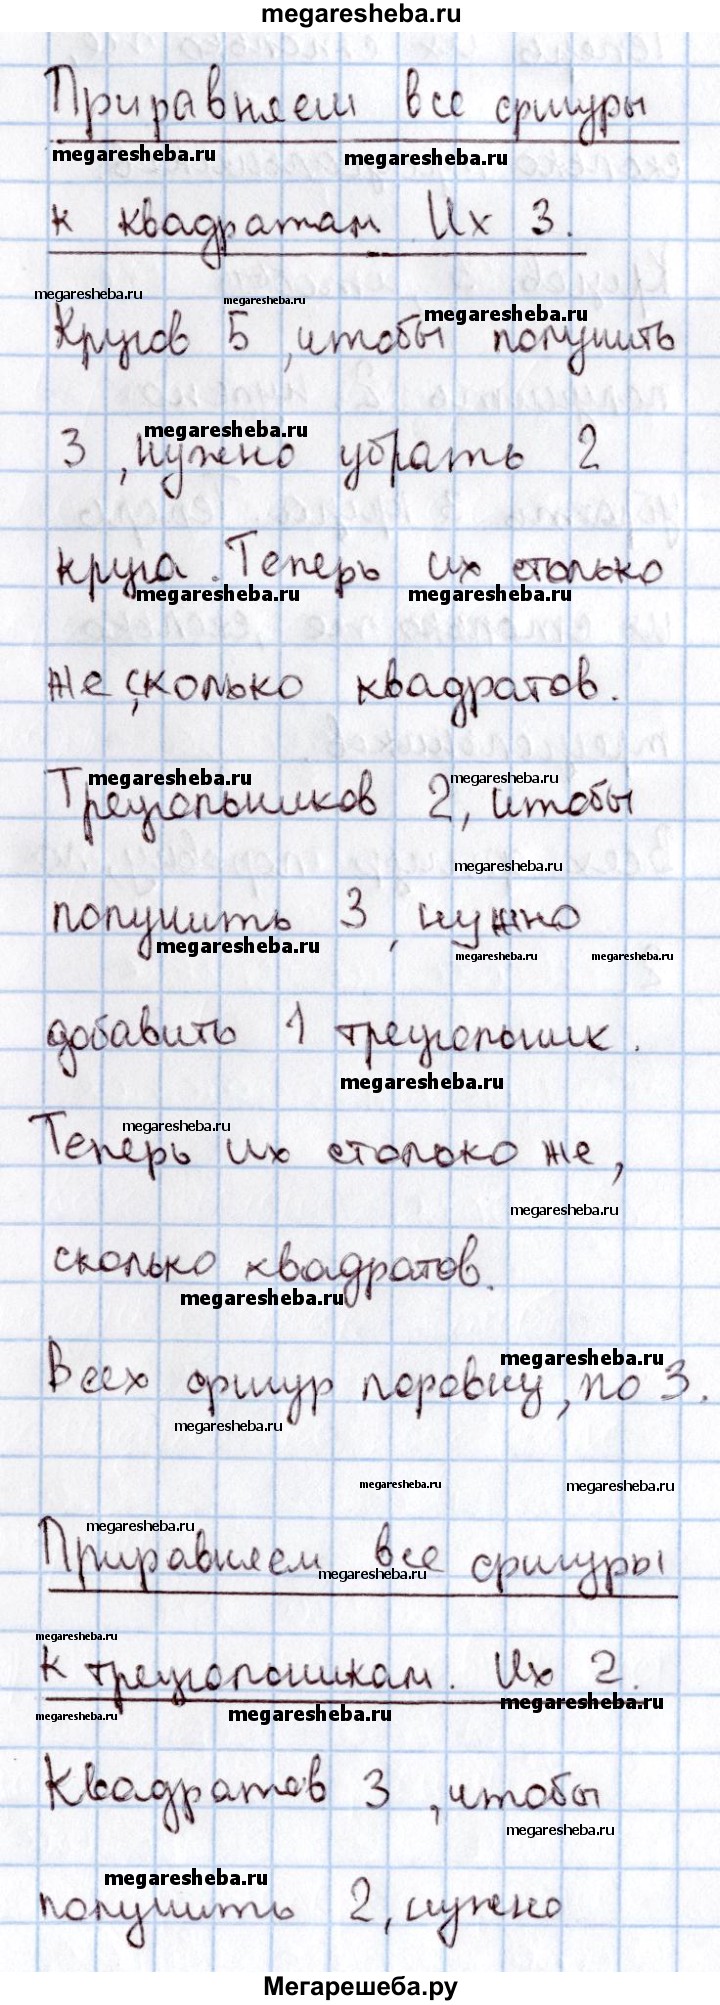 megaresheba.ru
Приравняем все фигуры
megaresheba.ru megaresheba.ru
к квадратам Их 3.
megaresheba.ru megaresheba.ru
megaresheba.ru
Кругов 5, чтобы получить
megaresheba.ru
3, нужно убрать 2
круга. Теперь их столько
megaresheba.ru megaresheba.ru
же, сколько квадратов.
megaresheba.ru megaresheba.ru
Треугольников 2, чтобы
megaresheba.ru
получить 3, нужно
megaresheba.ru megaresheba.ru megaresheba.ru
добавить 1 треугольник.
megaresheba.ru
megaresheba.ru
Теперь их столько же,
megaresheba.ru
сколько квадратов.
megaresheba.ru
megaresheba.ru
Всех фигур поровну, по 3.
megaresheba.ru
megaresheba.ru megaresheba.ru
megaresheba.ru
Приравняем все фигуры
megaresheba.ru
megaresheba.ru
к треугольникам. Их 2.
megaresheba.ru megaresheba.ru megaresheba.ru
Квадратов 3, чтобы
megaresheba.ru
megaresheba.ru
получить 2, нужно
Мегарешеба.ру